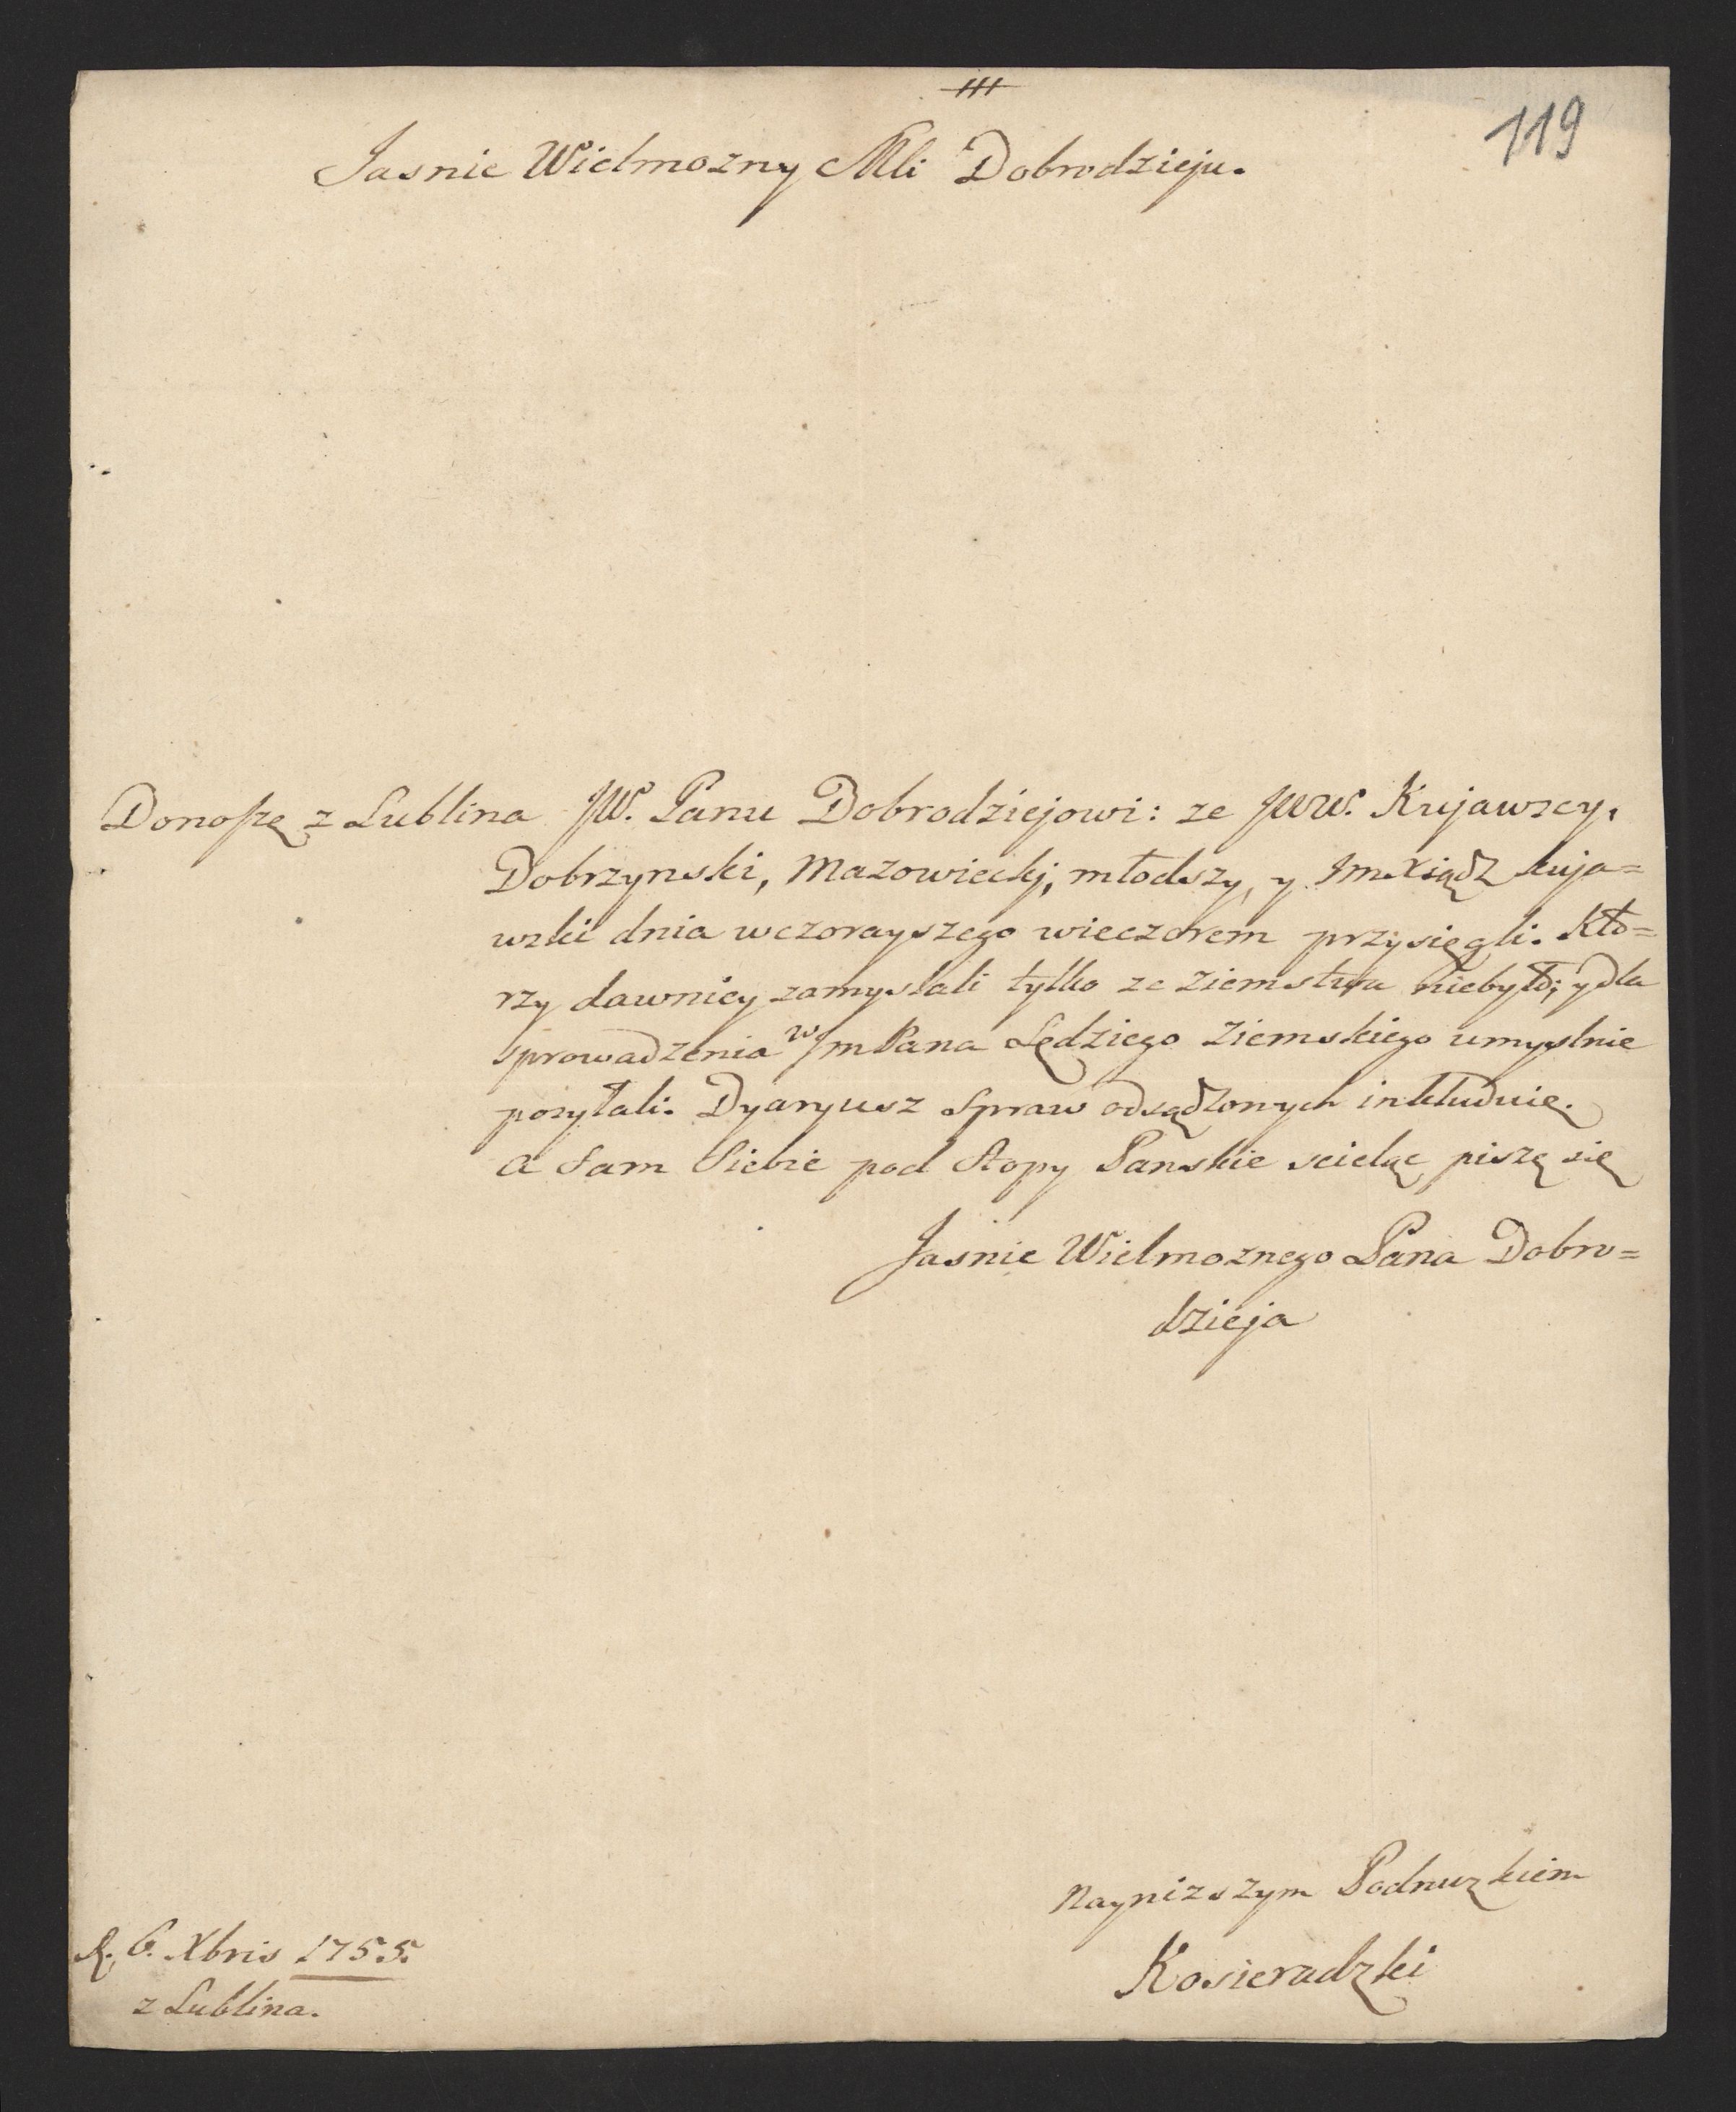 119
Jasnie Wielmozny Mli Dobrodzieju.
Donoszę z Lublina JW. Panu Dobrodziejowi: ze JWW. Kujawscy,
Dobrzynski, Mazowieckj, młodszy, y ImXiądz kuja=
wski dnia wczorayszego wieczorem przysięgli. Któ=
rzy dawniey zamyslali tylko ze ziemstwa niebyło; y dla
sprowadzenia W JmPana Sędziego Ziemskiego umyslnie
posyłali. Dyaryusz Spraw odsądzonych inkluduię.
a Sam Siebie pod Stopy Panskie scieląc piszę się
Jasnie Wielmoznego Pana Dobro=
dzieja
Naynizszym Podnuzkiem
Kosieradzki
d. 6. Xbris 1755.
z Lublina.